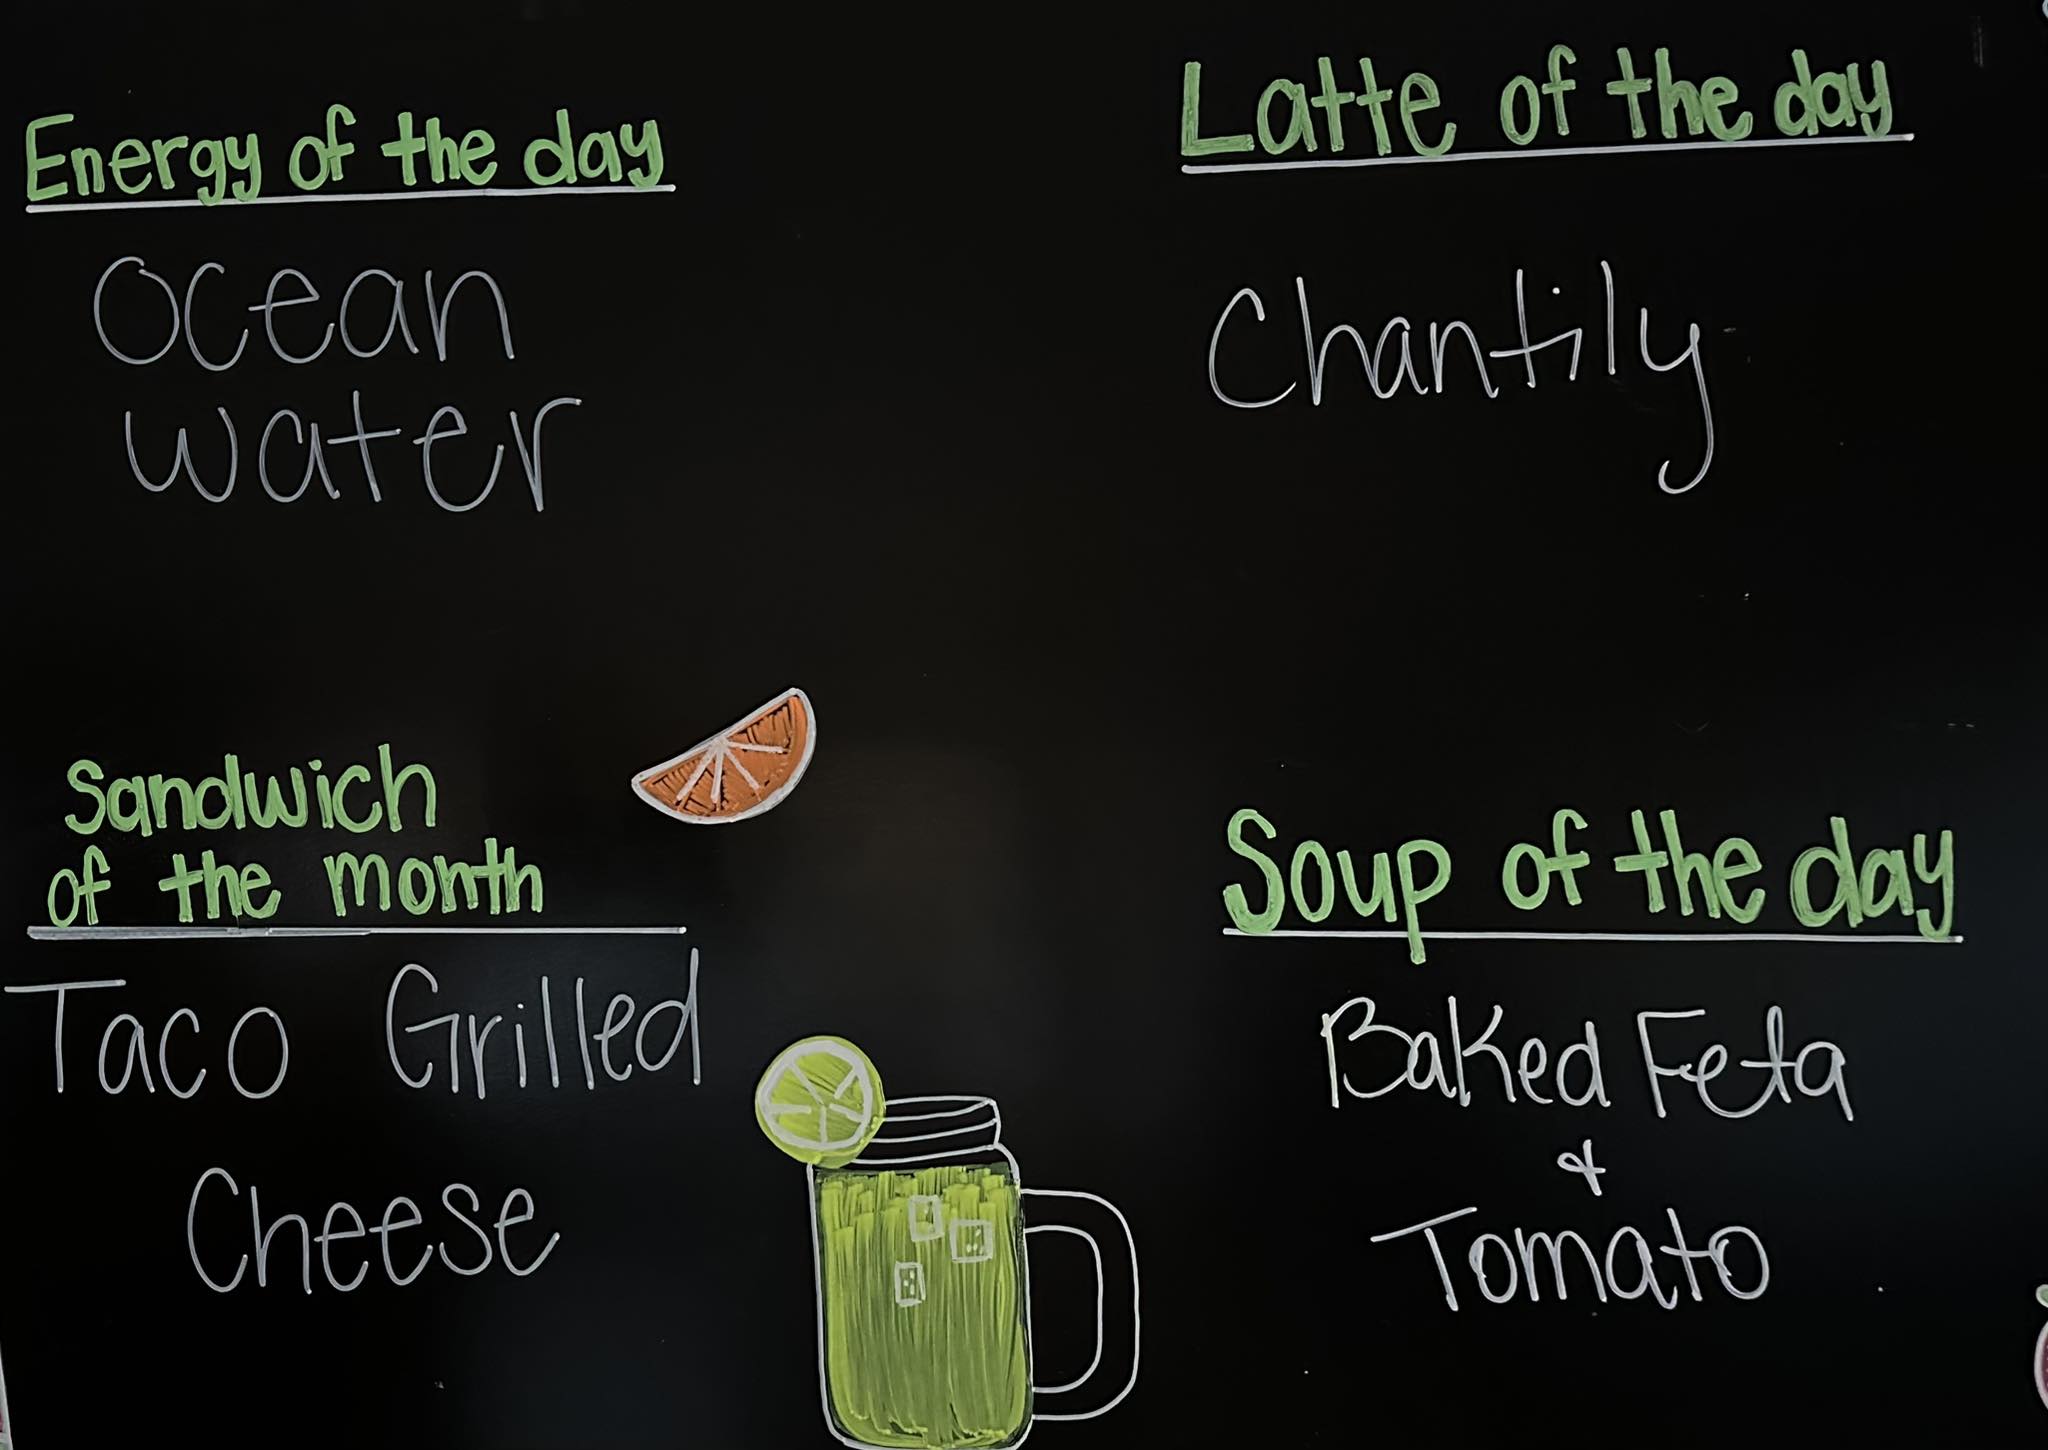 Energy of the day
Ocean
water
Latte of the day
Chantily
Sandwich
of the month
Taco Grilled
Cheese
Soup of the day
Baked Feta
&
Tomato